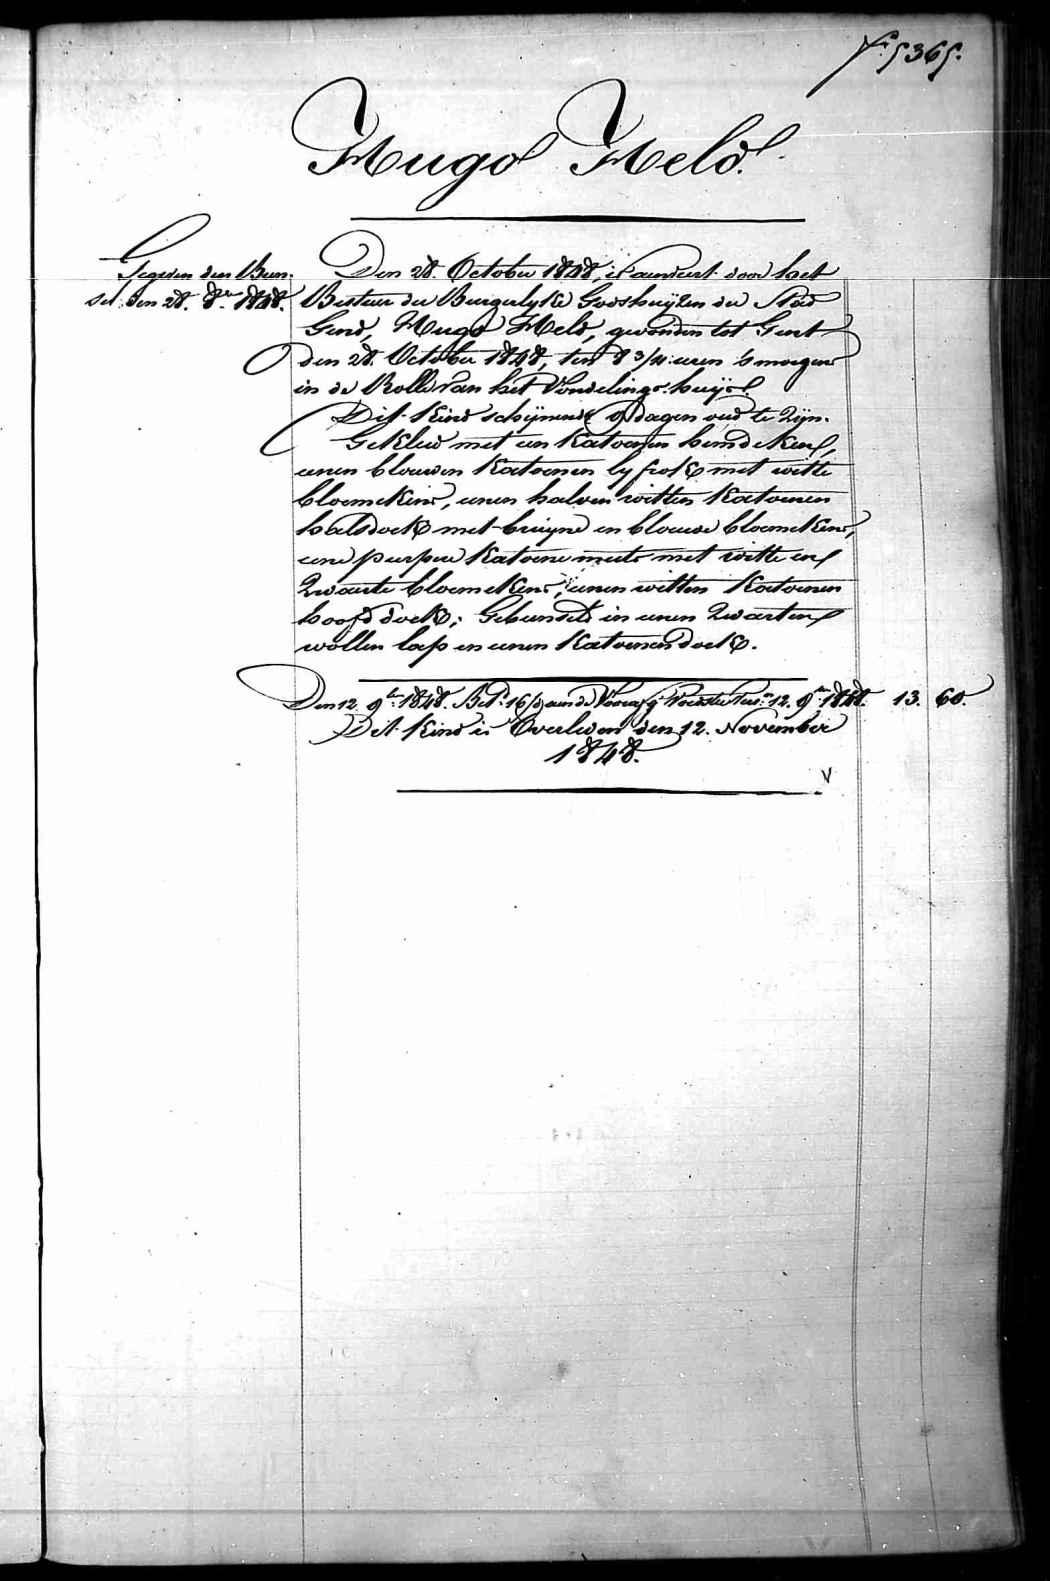 f.º 5365.
Hugo Held.
Gegeven den Bun-
sel den 28. 8.er 1848.
Den 28. October 1848, is aenveert door het
Bestuur der Burgerlyke Godshuijzen der Stad
Gend, Hugo Held, gevonden tot Gent
den 28. October 1848, ten 8 3/4 uren 's morgens
in de Rolle van het Vondelings-huijs.
Dit Kind schijnende 9 dagen oud te Zijn.
Gekleed met een Katoenen hemdeken,
eenen blauwen Katoenen lyfrok met witte
bloemekens, eenen halven witten Katoenen
halsdoek met bruijne en blauwe bloemekens,
eene purpere Katoene muts met witte en
Zwarte bloemekens, eenen witten Katoenen
hoofddoek; Gebunseld in eenen Zwarten
wollen lap en eenen Katoenen doek.
Den 12. 9.ber 1848. Bet.d 16/d aen de Voedster 12. 9.ber 1848. 13. 60.
Dit Kind is Overleden den 12. November
1848.